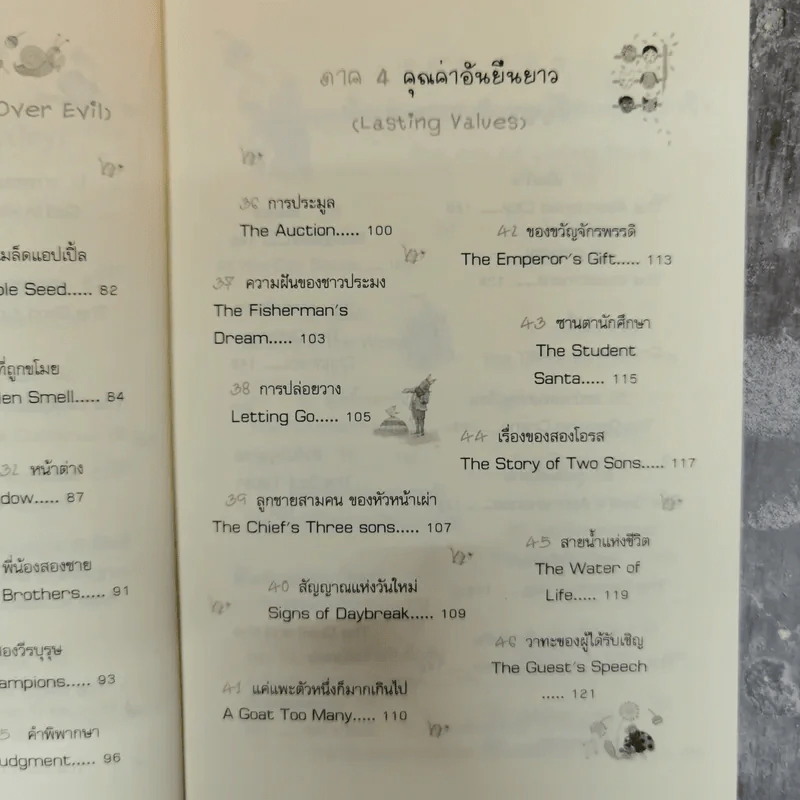 Over Evil)
82
84
32 หน้าต่าง
87
พี่น้องสองชาย
Brothers..... 91
93
คำพิพากษา
96
ภาค 4 คุณค่าอันยืนยาว
(Lasting Values)
36 การประมูล
The Auction..... 100
37 ความฝันของชาวประมง
The Fisherman's
Dream..... 103
38 การปล่อยวาง
Letting Go..... 105
39 ลูกชายสามคน ของหัวหน้าเผ่า
The Chief's Three sons..... 107
40 สัญญาณแห่งวันใหม่
Signs of Daybreak..... 109
41 แค่แพะตัวหนึ่งก็มากเกินไป
A Goat Too Many..... 110
42 ของขวัญจักรพรรดิ
The Emperor's Gift..... 113
43 ซานตานักศึกษา
The Student
Santa..... 115
44 เรื่องของสองโอรส
The Story of Two Sons..... 117
45 สายน้ำแห่งชีวิต
The Water of
Life..... 119
46 วาทะของผู้ได้รับเชิญ
The Guest's Speech
..... 121